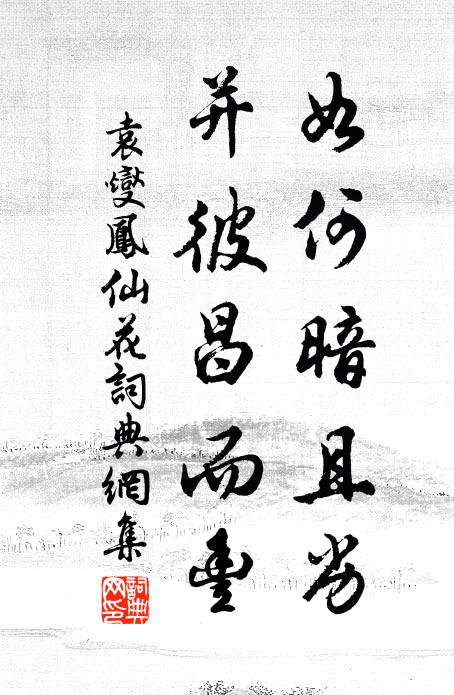 如何暗且劣
并彼昌而豐
袁燮鳳仙花詞典網集
詞典网印